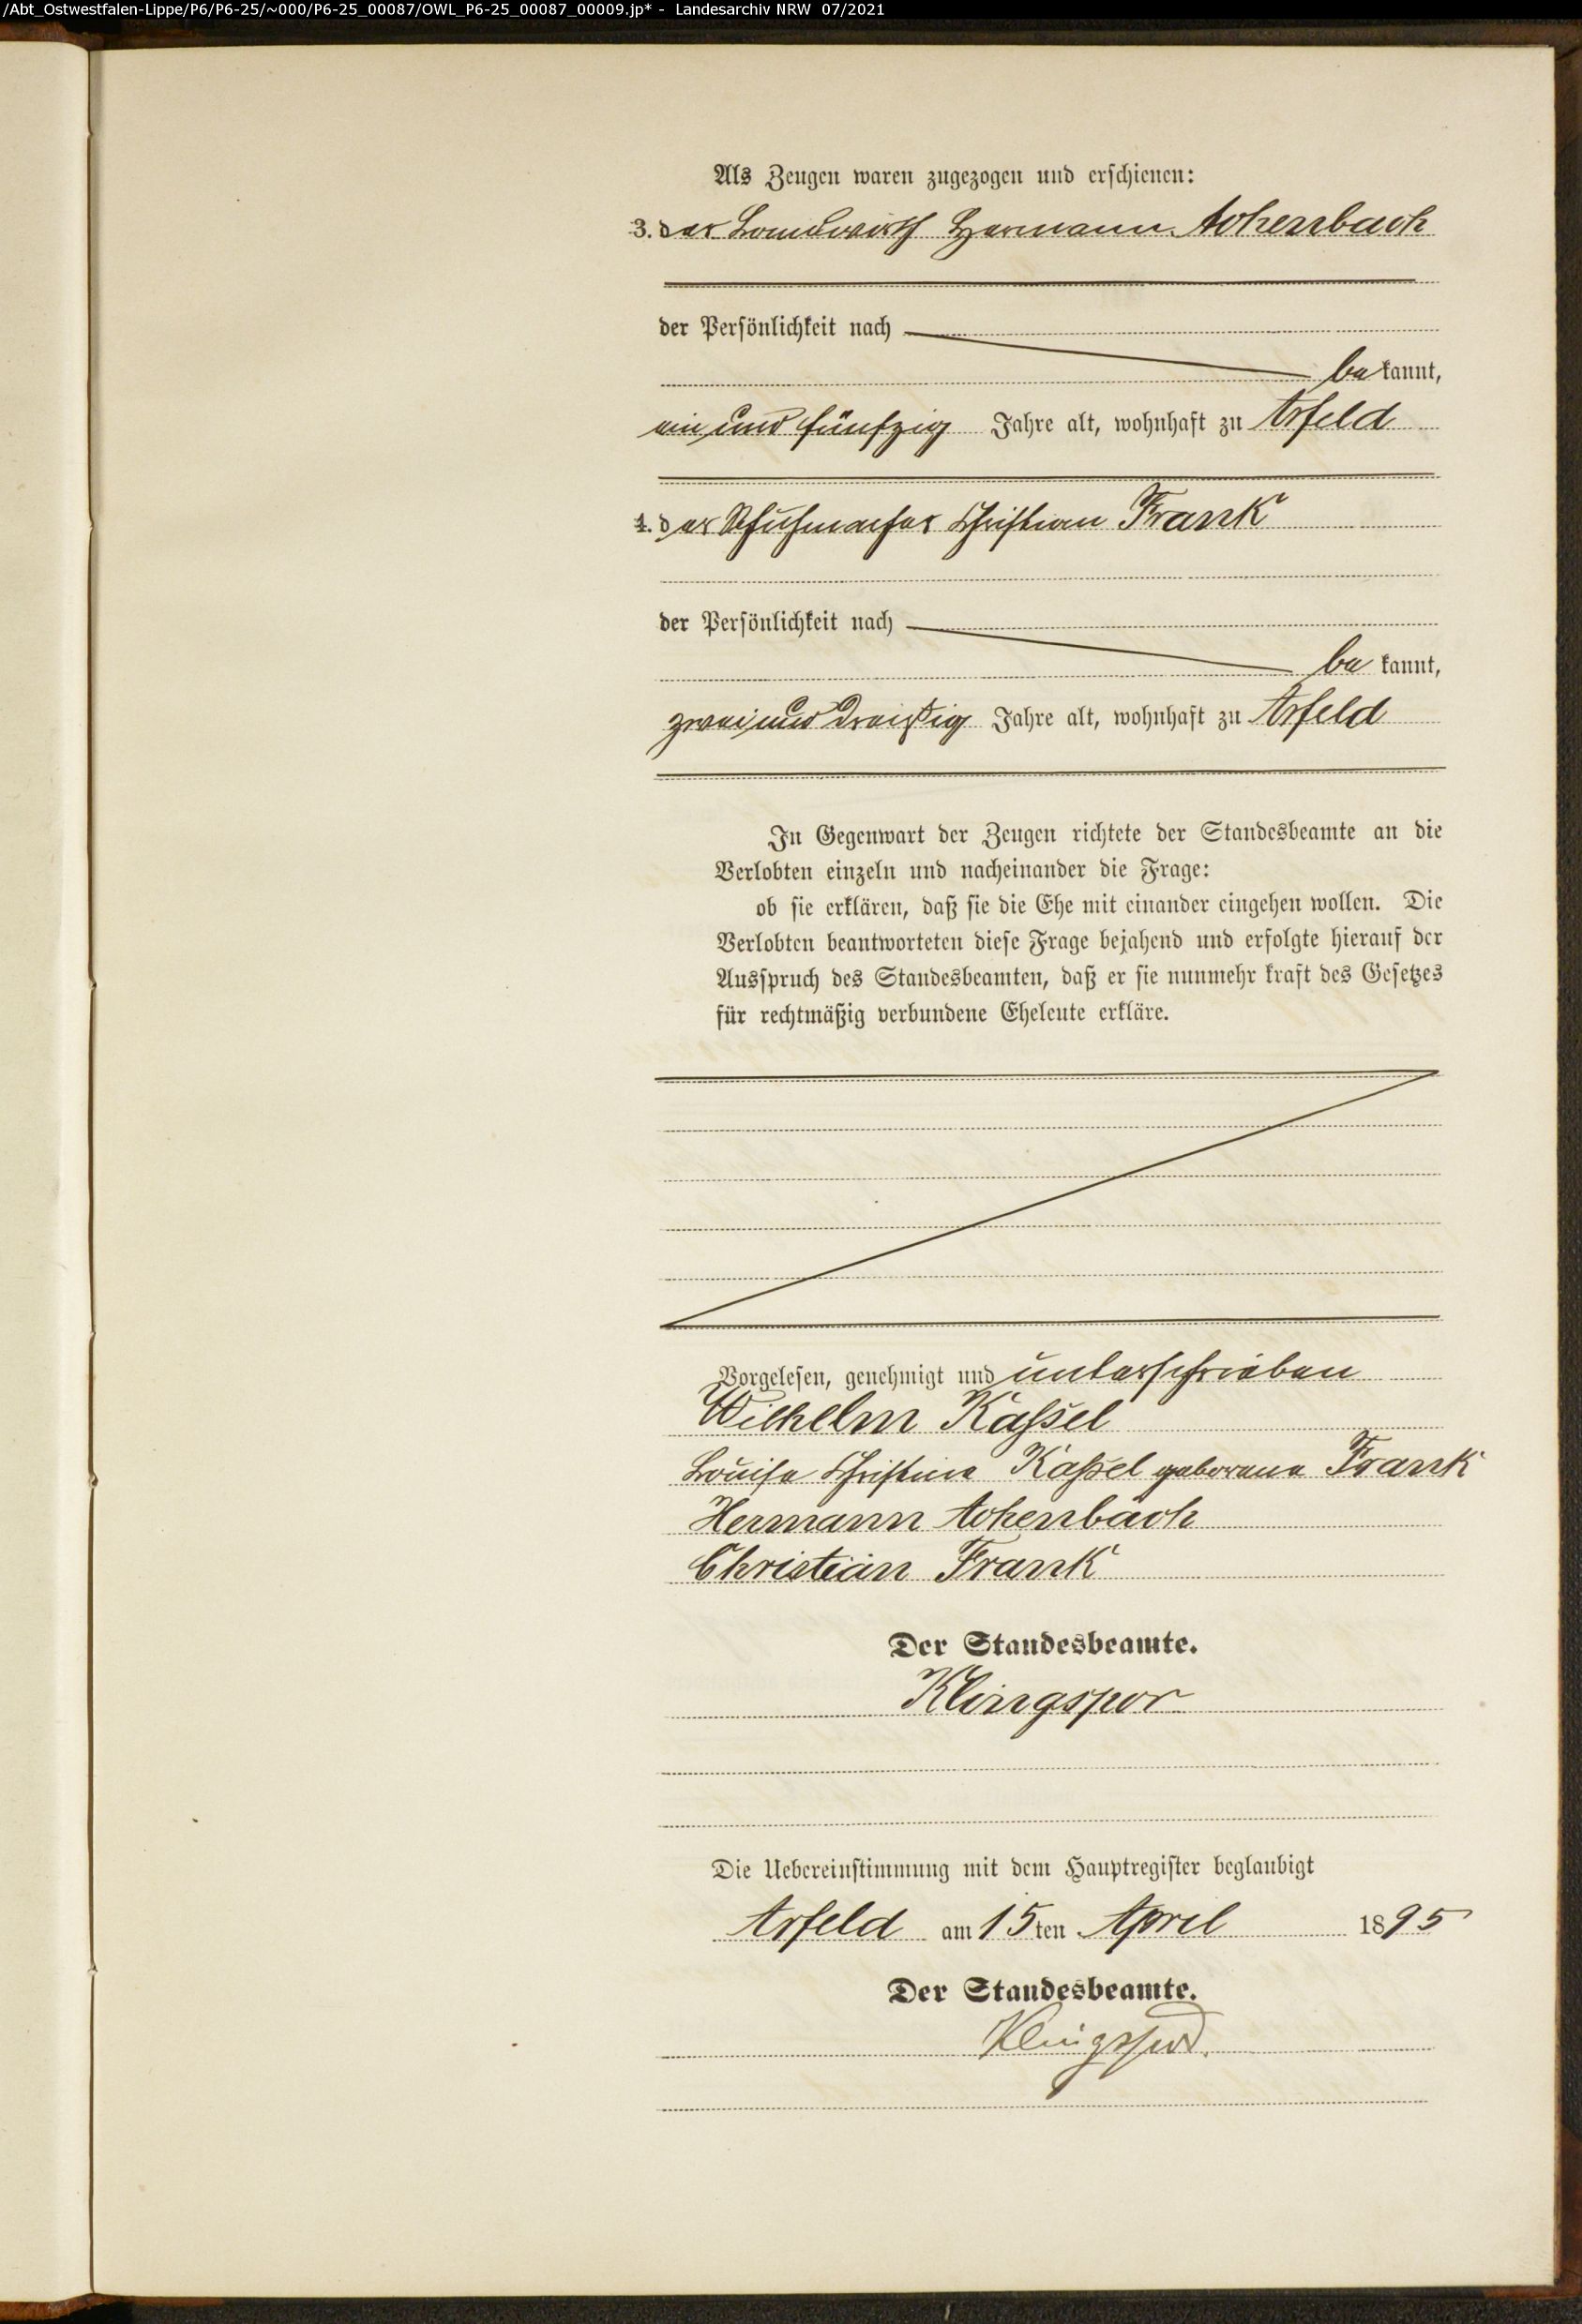 /Abt_Ostwestfalen-Lippe/P6/P6-25/~000/P6-25_00087/OWL_P6-25_00087_00009.jp* - Landesarchiv NRW 07/2021
Als Zeugen waren zugezogen und erschienen:
3. der Landwirth Hermann Achenbach
der Persönlichkeit nach
be kannt,
ein und fünfzig Jahre alt, wohnhaft zu Arfeld
4. der Schuhmacher Christian Frank
der Persönlichkeit nach
be kannt,
zwei und dreißig Jahre alt, wohnhaft zu Arfeld
In Gegenwart der Zeugen richtete der Standesbeamte an die
Verlobten einzeln und nacheinander die Frage:
ob sie erklären, daß sie die Ehe mit einander eingehen wollen. Die
Verlobten beantworteten diese Frage bejahend und erfolgte hierauf der
Ausspruch des Standesbeamten, daß er sie nunmehr kraft des Gesetzes
für rechtmäßig verbundene Eheleute erkläre.
Vorgelesen, genehmigt und unterschrieben
Wilhelm Kaßel
Louise Christine Kaßel geborene Frank
Hermann Achenbach
Christian Frank
Der Standesbeamte.
Klingspor
Die Uebereinstimmung mit dem Hauptregister beglaubigt
Arfeld am 15ten April 1895
Der Standesbeamte.
Klingspor.